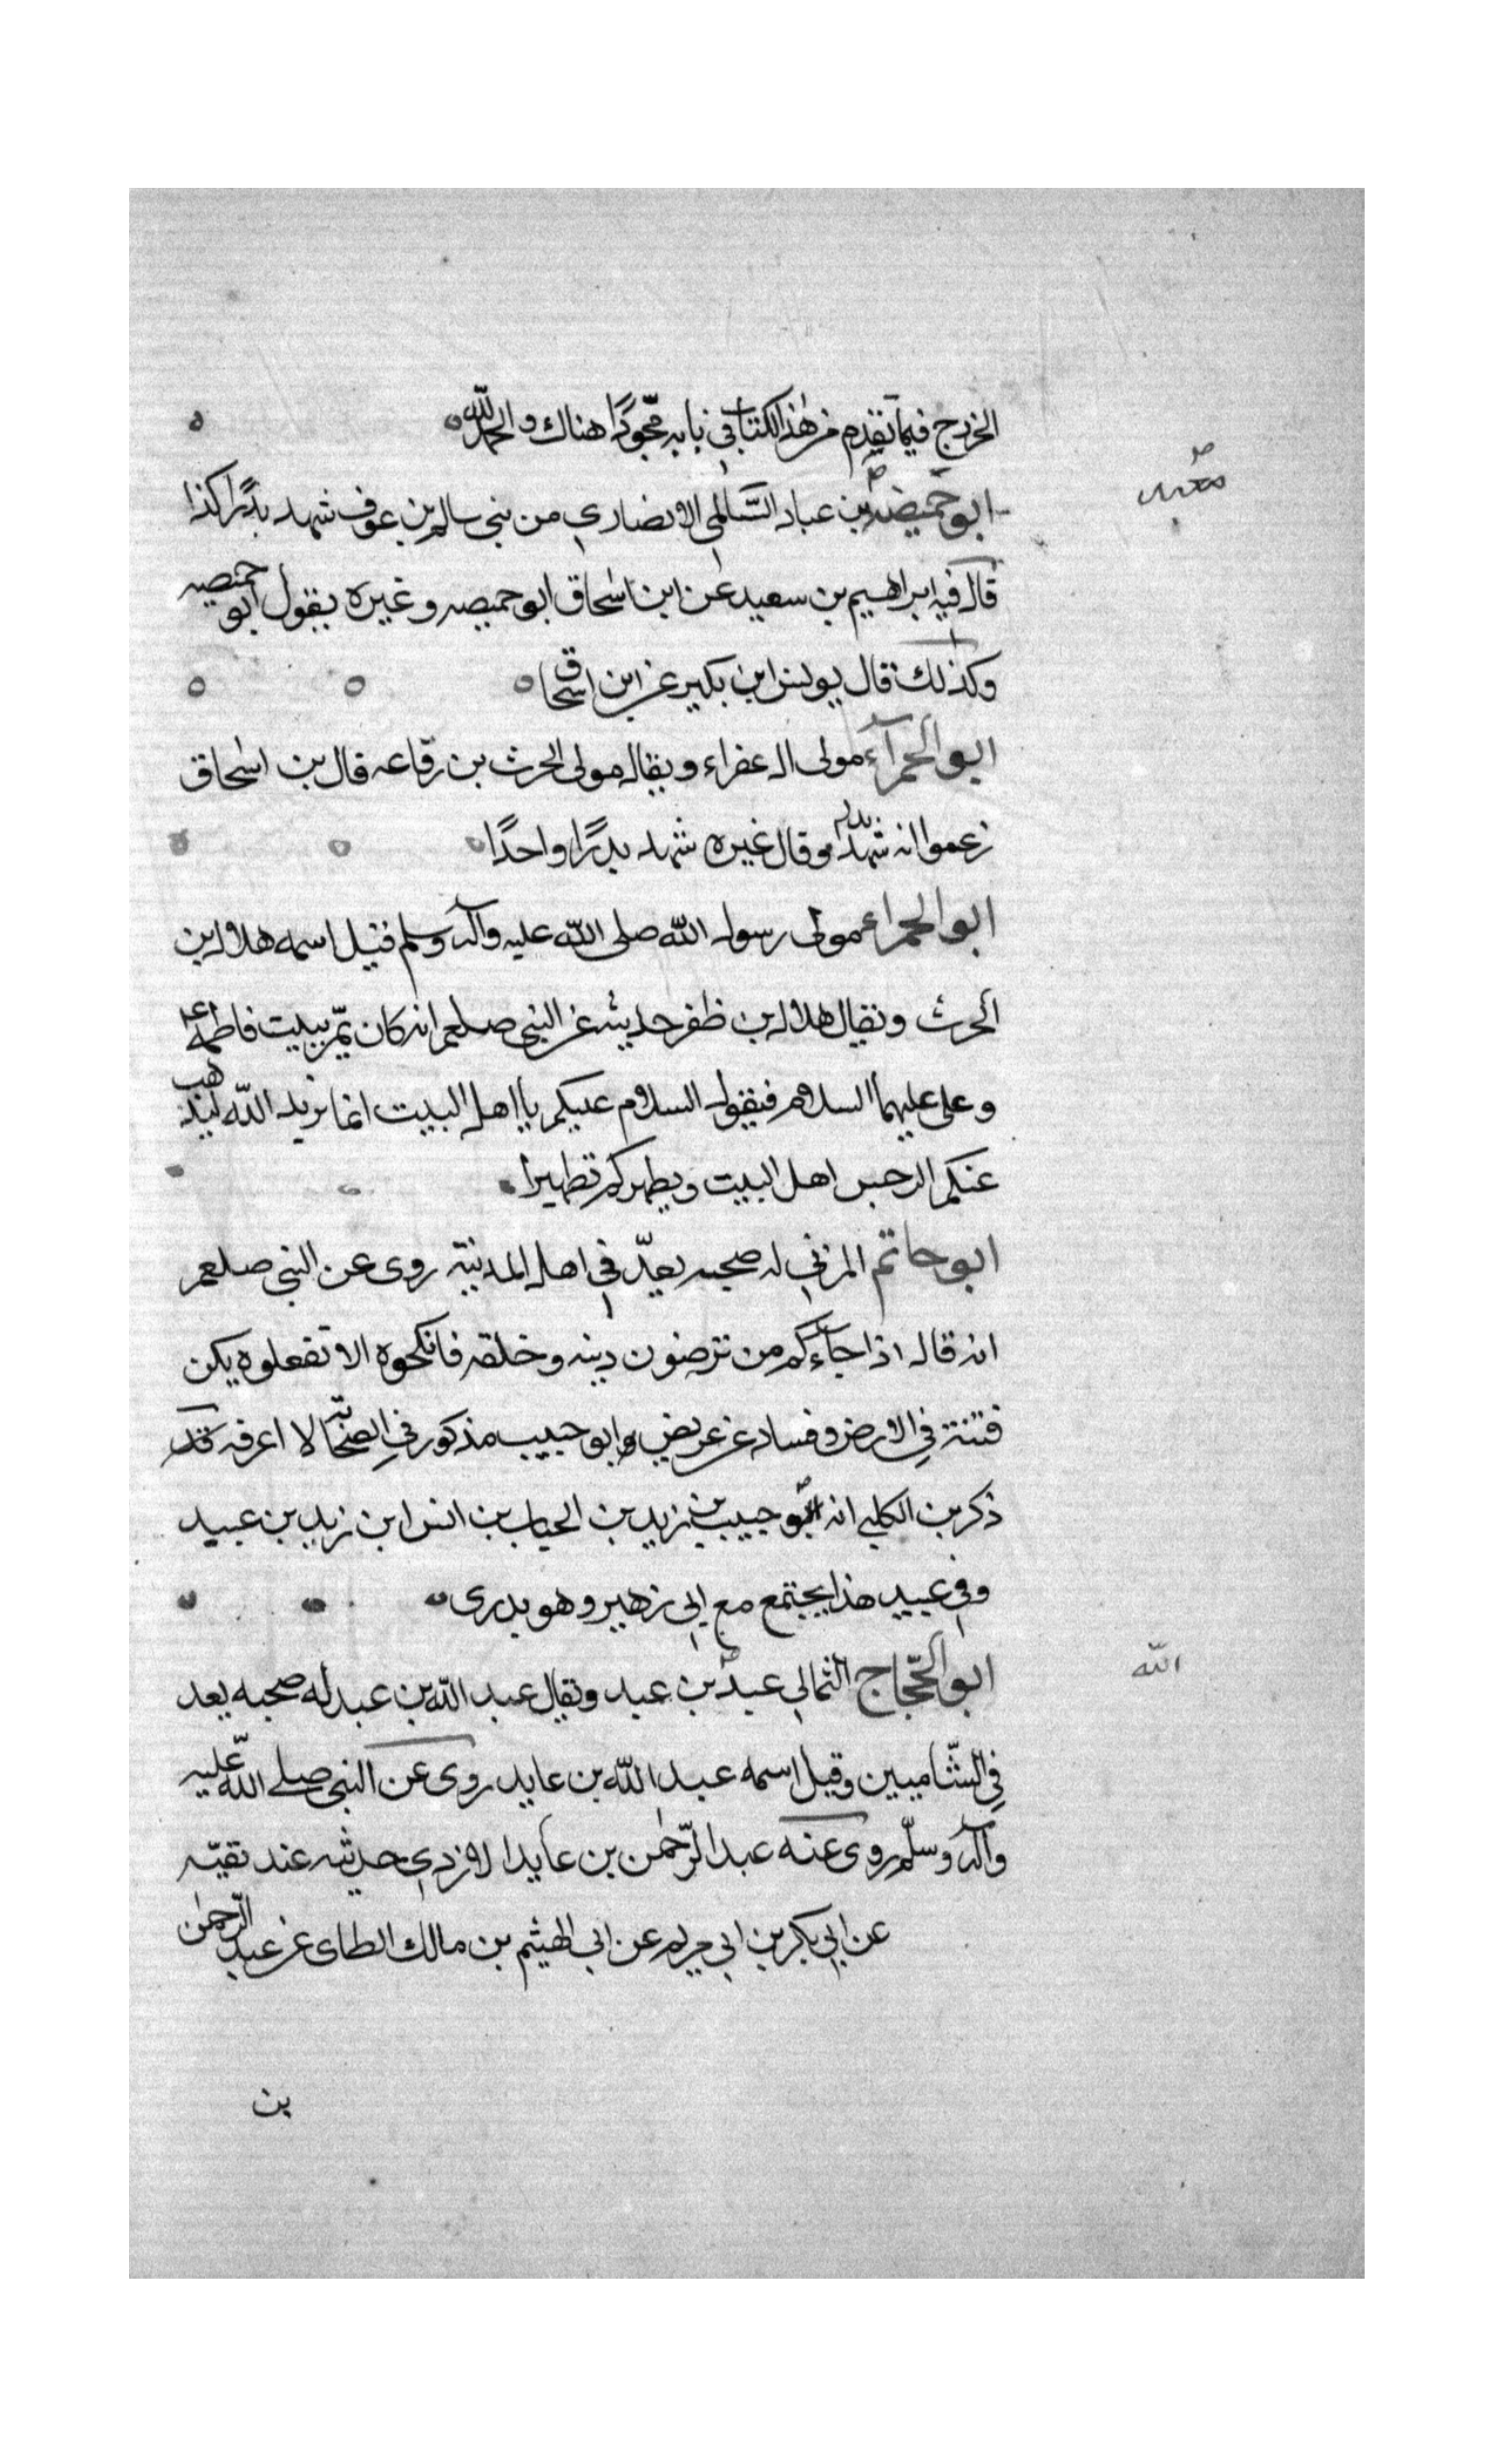 الخزرج فيما تقدم من هذا الكتاب في بابه مجودًا هناك والحمد لله
معبد
ابو حميضه بن عباد السَّالمي الانصاري من بني سالم بن عوف شهد بدرًا كذا
قال فيه ابراهيم بن سعيد عن ابن اسحاق ابو حميصه وغيره يقول ابو حميصه
وكذلك قال يونس ابن بكير عن ابن اسحاق
ابو الحمرآء مولى ال عفراء ويقال مولى الحرث بن رفاعه قال بن اسحاق
زعموا انه شهد بدرا وقال غيره شهد بدرًا واحدًا
ابو الحمراء مولى رسول الله صلى الله عليه وآله وسلم فقيل اسمه هلال بن
الحرث ويقال هلال بن ظفر حديثه عن النبي صلعم انه كان يمّر ببيت فاطمه
وعلى عليهما السلام فيقول السلام عليكم يا اهل البيت انما يريد الله ليذهب
عنكم الرجس اهل البيت ويطهركم تطهيرا
ابو حاتم المزني له صحبه يعدّ في اهل المدينة روى عن النبي صلعم
انه قال اذا جآءكم من ترضون دينه وخلقه فانكحوه الا تفعلوه يكن
فتنة في الارض وفساد عريض وابو حبيب مذكور في الصحابة لا اعرفه قد
ذكر بن الكلبي انه ابو حبيب بن زيد بن الحباب بن انس ابن زيد بن عبيد
وفي عبيد هذا يجتمع مع ابي زهير وهو بدرى
الله
ابو الحجّاج الثمالي عبد بن عبد ويقال عبد الله بن عبد له صحبه يعد
في الشّاميين وقيل اسمه عبد الله بن عايد روى عن النبي صلى الله عليه
وآله وسلّم روى عنه عبد الرّحمن بن عايد الازدي حديثه عند بقيّه
عن ابي بكر بن ابي مريم عن ابي الهيثم بن مالك الطاى عن عبد الرحمن
بن